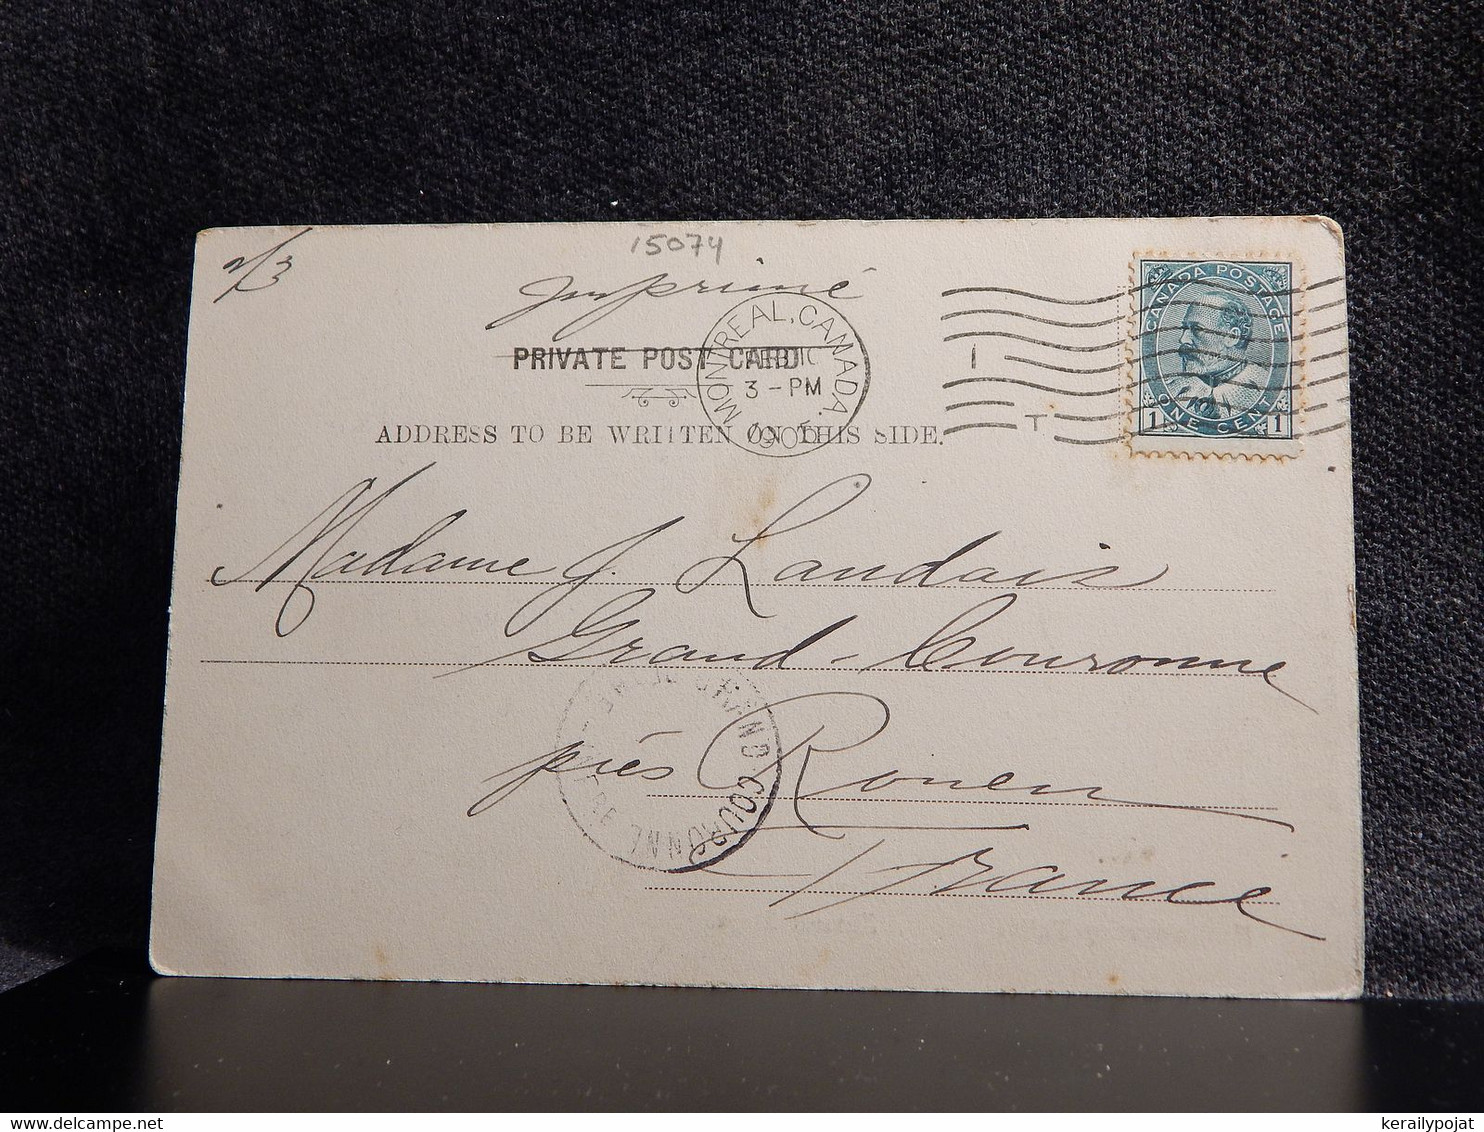 2/3
15074
Imprimé
PRIVATE POST CARD
MONTREAL, CANADA.
FEB 10
3 - PM
1905
I
T
CANADA POSTAGE
1 ONE CENT 1
ADDRESS TO BE WRITTEN ON THIS SIDE.
Madame J. Landais
Grand-Couronne
près Rouen
France
GRAND-COURONNE
kerailypojat